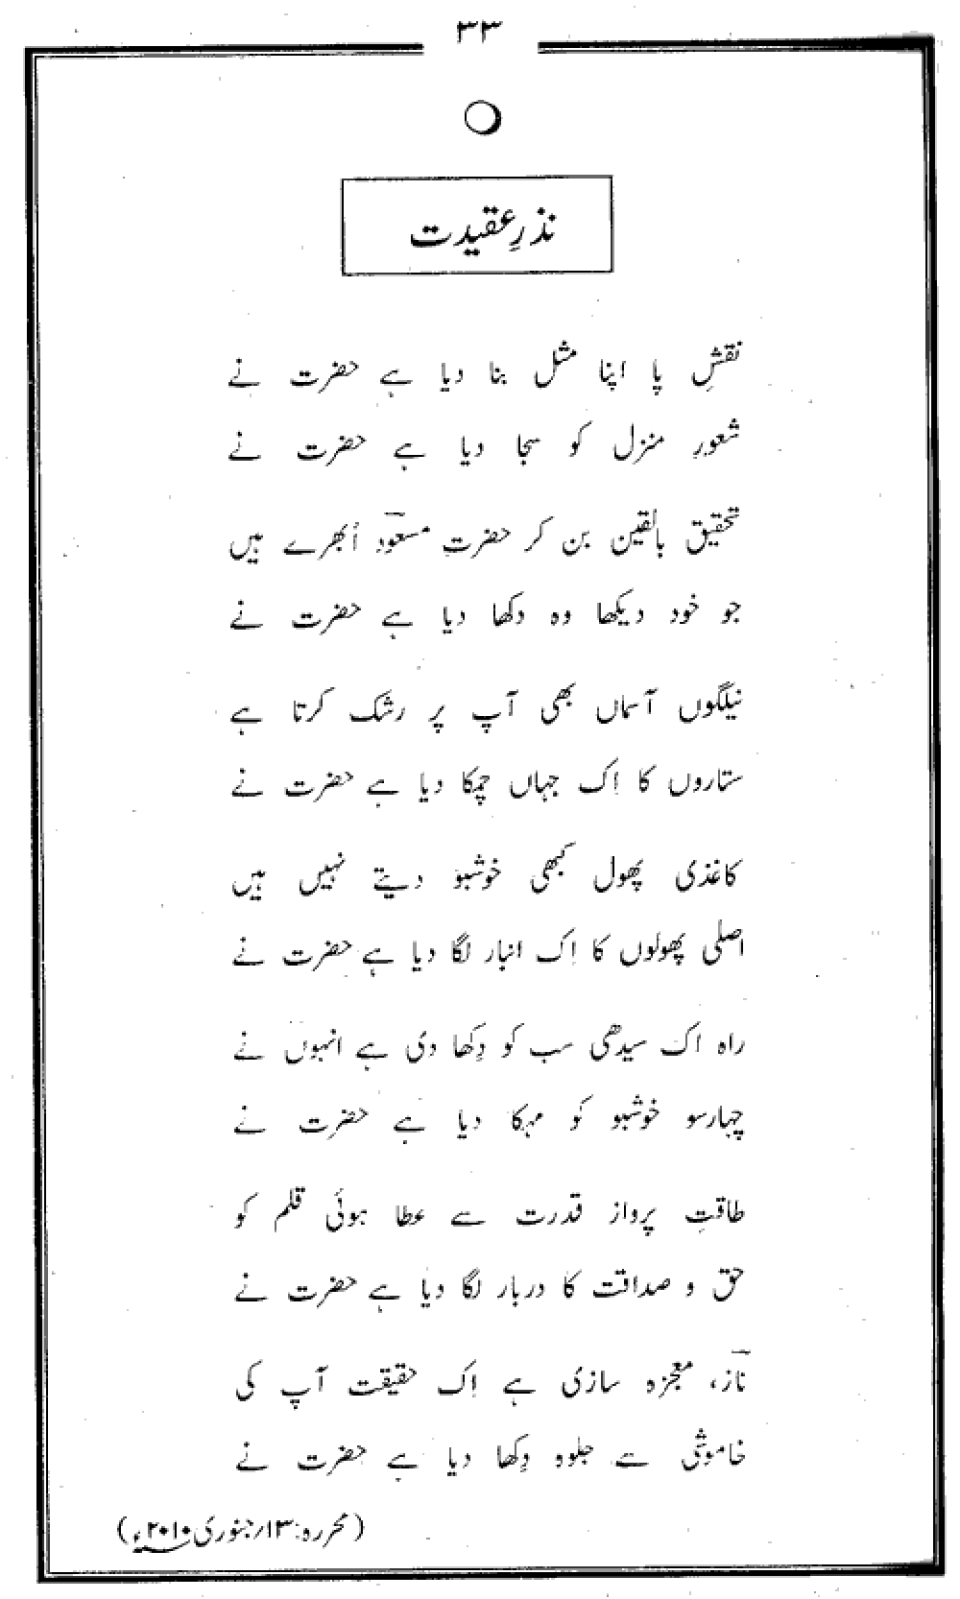 ۳۳
نذرِ عقیدت
نقشِ پا اپنا مثل بنا دیا ہے حضرت نے
شعورِ منزل کو سجا دیا ہے حضرت نے
تحقیق بالقین بن کر حضرتِ مسعودؔ اُبھرے ہیں
جو خود دیکھا وہ دکھا دیا ہے حضرت نے
نیلگوں آسماں بھی آپ پر رشک کرتا ہے
ستاروں کا اِک جہاں چمکا دیا ہے حضرت نے
کاغذی پھول کبھی خوشبو دیتے نہیں ہیں
اصلی پھولوں کا اِک انبار لگا دیا ہے حضرت نے
راہ اک سیدھی سب کو دِکھا دی ہے انہوں نے
چہارسو خوشبو کو مہکا دیا ہے حضرت نے
طاقتِ پرواز قدرت سے عطا ہوئی قلم کو
حق و صداقت کا دربار لگا دیا ہے حضرت نے
نازؔ، معجزہ سازی ہے اِک حقیقت آپ کی
خاموشی سے جلوہ دِکھا دیا ہے حضرت نے
(محررہ: ۱۳؍جنوری ۲۰۱۰ء)